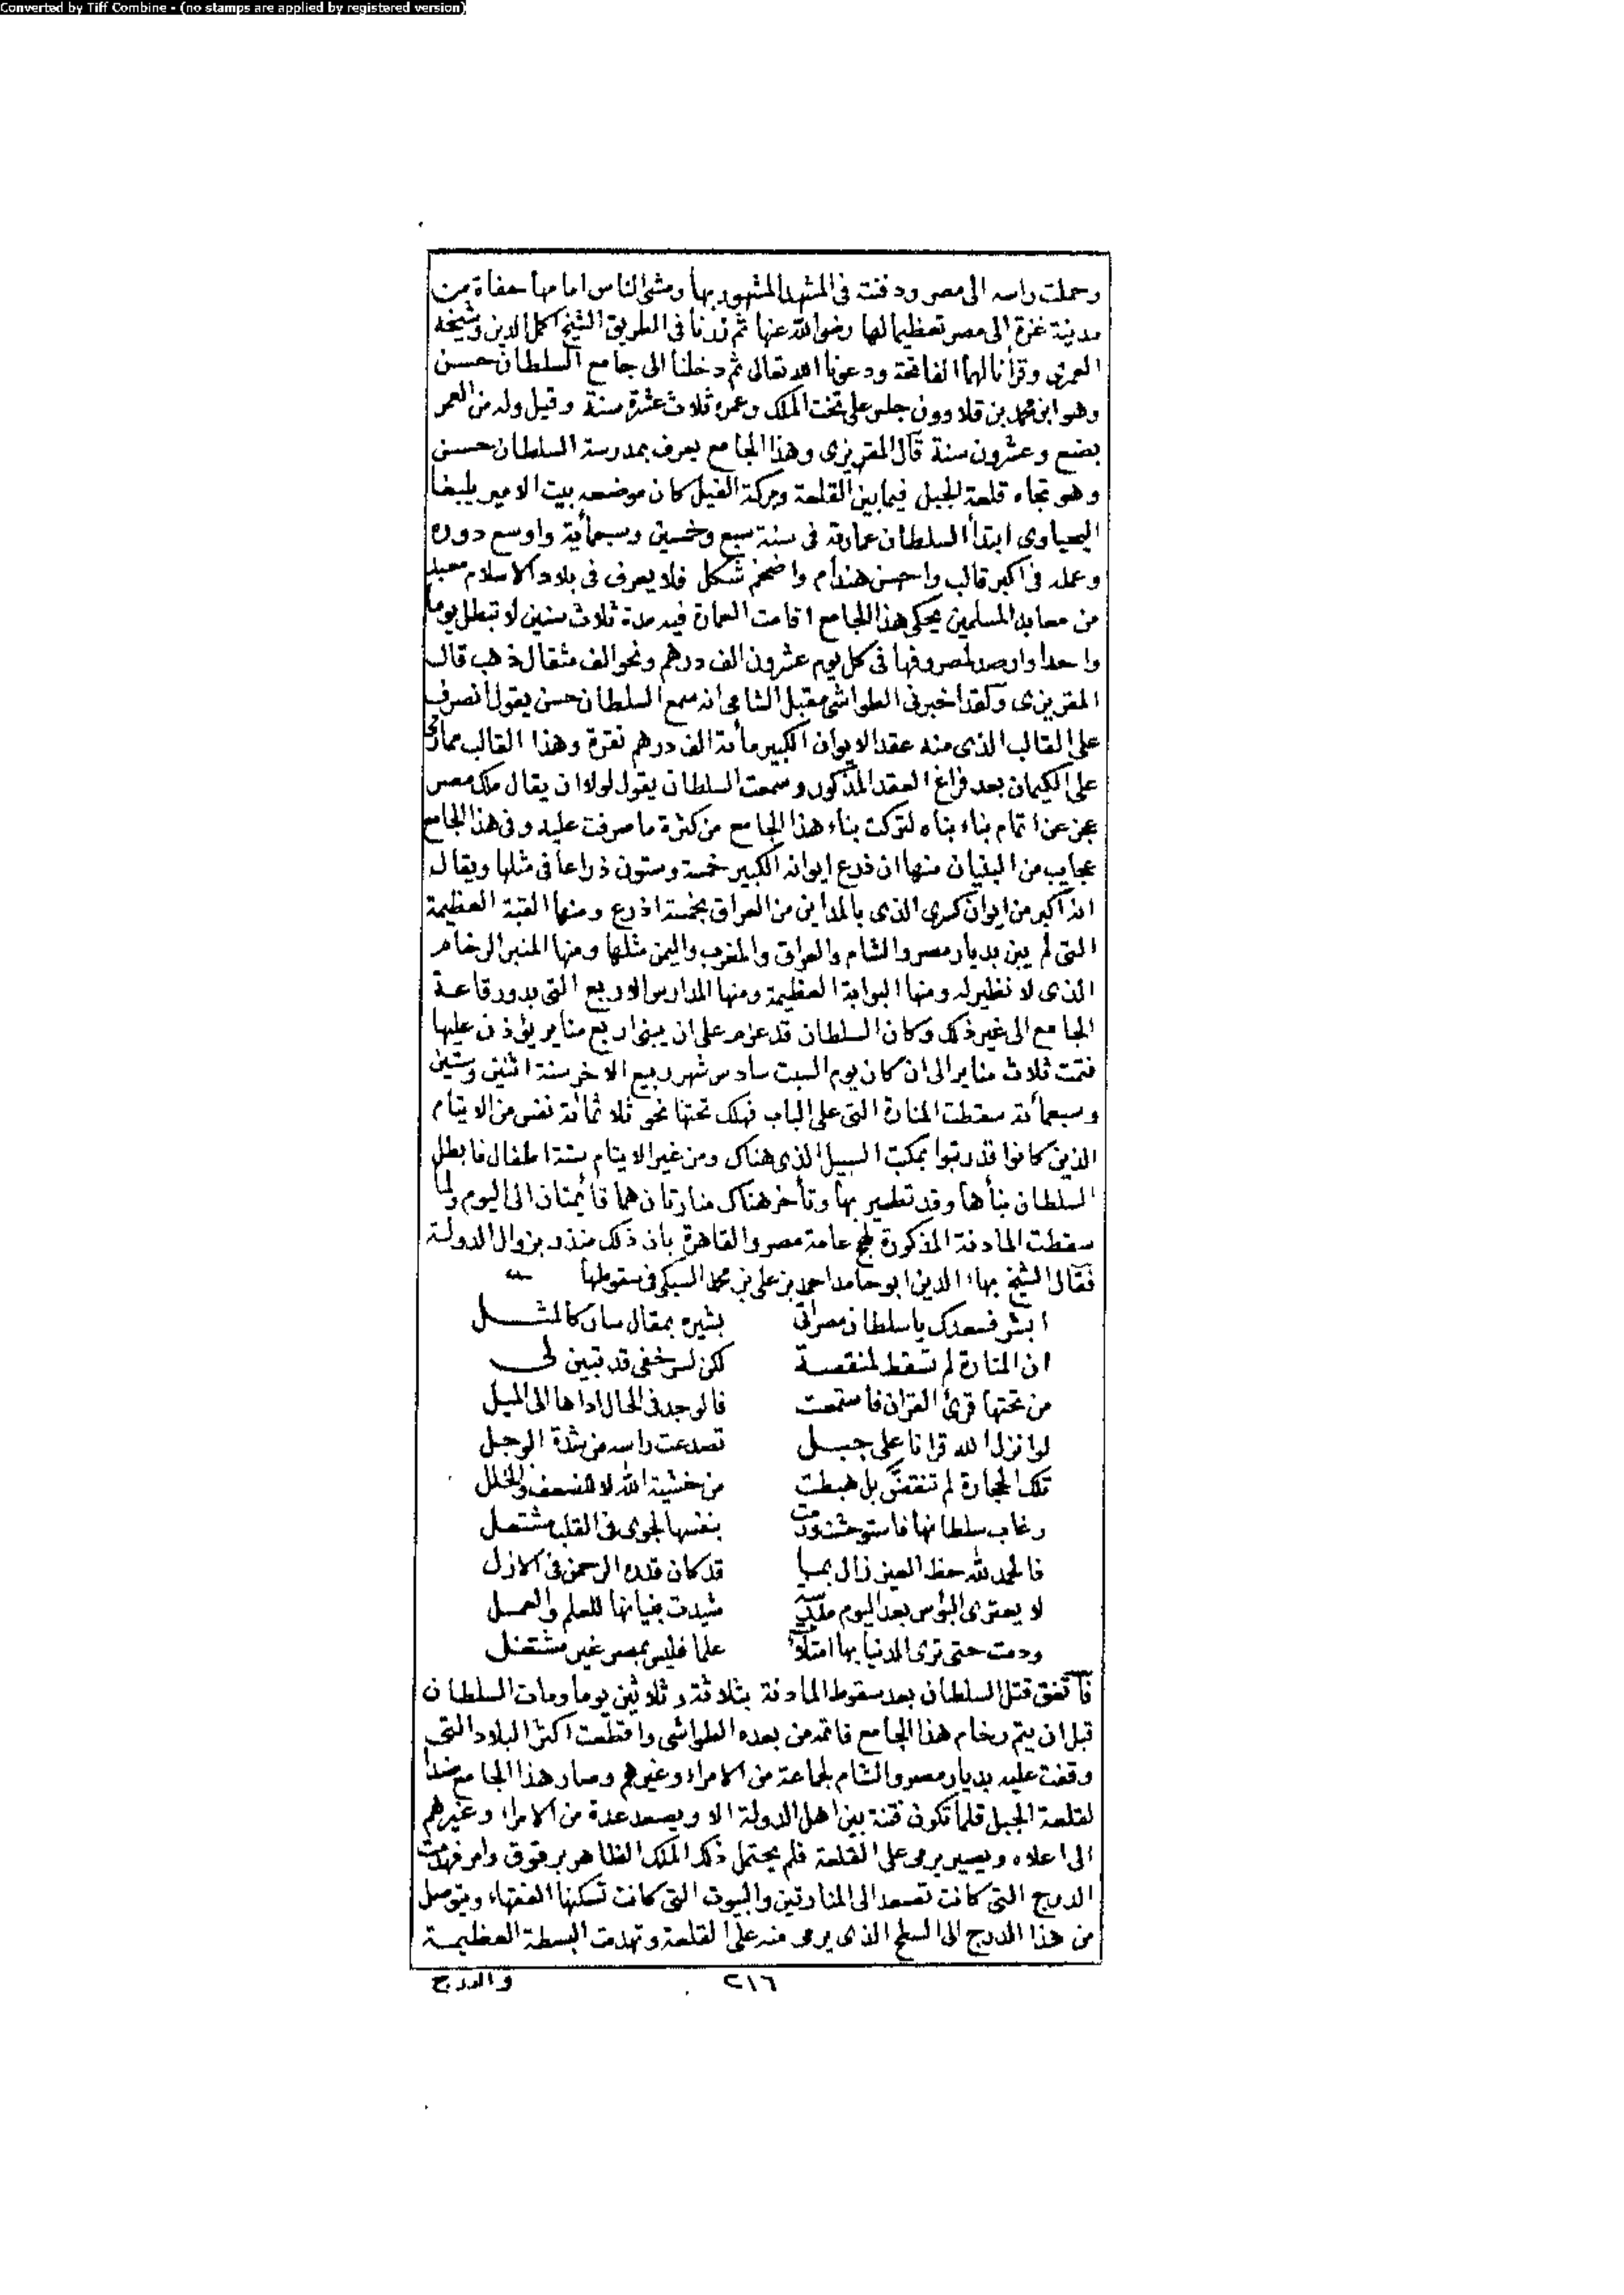 Converted by Tiff Combine - (no stamps are applied by registered version)
وحملت راسه الى مصر ودفنت فى المشهد المشهور بها ومشى الناس امامها حفاة من
مدينة غزة الى مصر تعظيما لها رضى الله عنها ثم زرنا فى الطريق الشيخ اكمل الدين وشيخه
العمرى وقرأنا لهما الفاتحة ودعونا الله تعالى ثم دخلنا الى جامع السلطان حسن
وهو ابن محمد بن قلاوون جلس على تخت الملك وعمره ثلاث عشرة سنة وقيل وله من العمر
بضع وعشرون سنة قال المقريزى وهذا الجامع يعرف بمدرسة السلطان حسن
وهو تجاه قلعة الجبل فيما بين القلعة وبركة الفيل كان موضعه بيت الامير يلبغا
اليحياوى ابتدأ السلطان عمارته فى سنة سبع وخمسين وسبعمأية واوسع دوره
وعمله فى اكبر قالب واحسن هندام واضخم شكل فلا يعرف فى بلاد الاسلام معبد
من معابد المسلمين يحكى هذا الجامع اقامت العمارة فيه مدة ثلاث سنين لا تبطل يوما
واحدا وارصد لمصروفها فى كل يوم عشرون الف درهم ونحو الف مثقال ذهب قال
المقريزى ولقد اخبرنى الطواشى مقبل الشامى انه سمع السلطان حسن يقول انصرف
على القالب الذى منه عقد الايوان الكبير مأية الف درهم نقرة وهذا القالب مما رمى
على الكيمان بعد فراغ العقد المذكور وسمعت السلطان يقول لولا ان يقال ملك مصر
عجز عن اتمام بناء بناه لتركت بناء هذا الجامع من كثرة ما صرفت عليه وفى هذا الجامع
عجايب من البنيان منها ان ذرع ايوانه الكبير خمسة وستون ذراعا فى مثلها ويقال
انه اكبر من ايوان كسرى الذى بالمداين من العراق بخمسة اذرع ومنها القبة العظيمة
التى لم يبن بديار مصر والشام والعراق والمغرب واليمن مثلها ومنها المنبر الرخام
الذى لا نظير له ومنها البوابة العظيمة ومنها المدارس الاربع التى بدور قاعة
الجامع الى غير ذلك وكان السلطان قد عزم على ان يبنى اربع مناير يؤذن عليها
فتمت ثلاث مناير الى ان كان يوم السبت سادس شهر ربيع الاخر سنة اثنين وستين
وسبعمأية سقطت المنارة التى على الباب فهلك تحتها نحو ثلاثمائة نفس من الايتام
الذين كانوا قد رتبوا بمكتب السبيل الذى هناك ومن غير الايتام ستة اطفال فابطل
السلطان بنأها وقد تطير بها وتأخر هناك منارتان هما قأيمتان الى اليوم ولما
سقطت المادنة المذكورة لهج عامة مصر والقاهرة بان ذلك منذر بزوال الدولة
فقال الشيخ بهاء الدين ابو حامد احمد بن على بن محمد السبكى فى سقوطها
ابشر فسعدك يا سلطان مصر اتى بشيره بمقال سار كالمثل
ان المنارة لم تسقط لمنقصة لكن لسر خفى قد تبين لى
من تحتها قرئ القران فاستمعت فالوجد فى الحال اداها الى الميل
لو انزل الله قرانا على جبل تصدعت راسه من شدة الوجل
تلك الحجارة لم تنقض بل هبطت من خشية الله لا للضعف والخلل
وغاب سلطانها فاستوحشت ورمت بنفسها لجوى فى القلب مشتعل
فالحمد لله حظ العين زال بما قد كان قدره الرحمن فى الازل
لا يعترى البؤس بعد اليوم مدرسة شيدت بنيانها للعلم والعمل
ودمت حتى ترى الدنيا بها امتلأت علما فليس بمصر غير مشتغل
فاتفق قتل السلطان بعد سقوط المادنة بثلاثة وثلاثين يوما ومات السلطان
قبل ان يتم رخام هذا الجامع فاتمه من بعده الطواشى واقتطعت اكثر البلاد التى
وقفت عليه بديار مصر والشام لجماعة من الامراء وغيرهم وصار هذا الجامع ضدا
لقلعة الجبل قلما تكون فتنة بين اهل الدولة الا ويصعد عدة من الامراء وغيرهم
الى اعلاه ويصير يرمى على القلعة فلم يحتمل ذلك الملك الظاهر برقوق وامر فهدمت
الدرج التى كانت تصعد الى المنارتين والبيوت التى كانت تسكنها الفقهاء ويتوصل
من هذا الدرج الى السطح الذى يرمى منه على القلعة وتهدمت البسطة العظيمة
٢١٦ والدرج